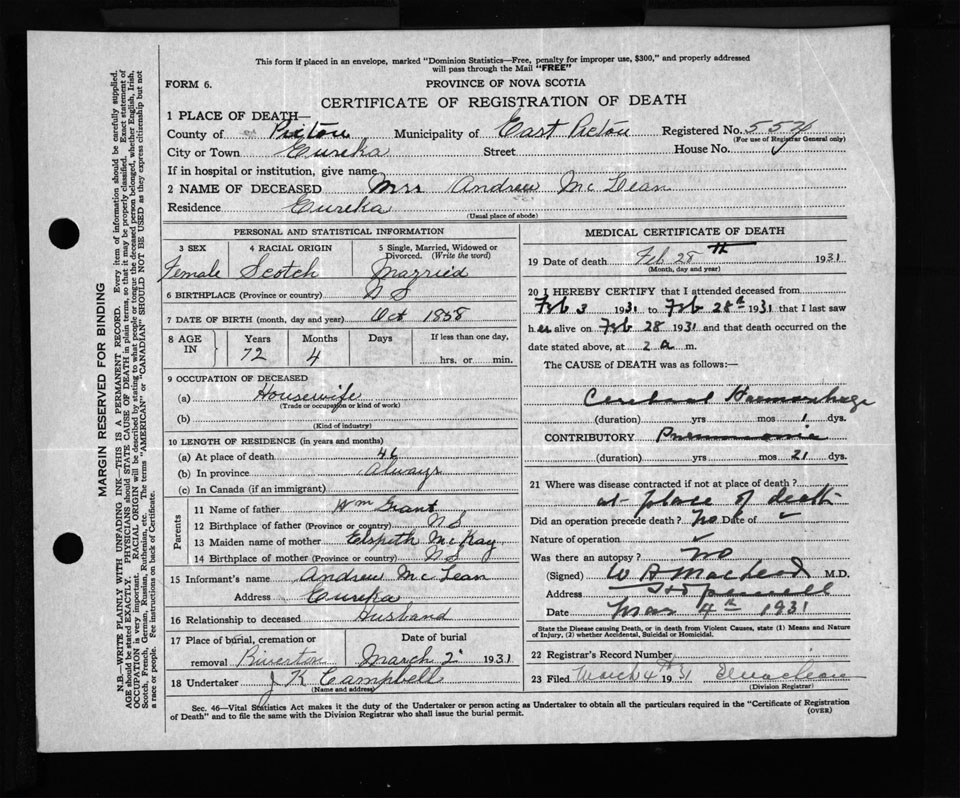 This form if placed in an envelope, marked "Dominion Statistics—Free, penalty for improper use, $300," and properly addressed
will pass through the Mail "FREE"
FORM 6.
PROVINCE OF NOVA SCOTIA
CERTIFICATE OF REGISTRATION OF DEATH
1 PLACE OF DEATH—
County of Pictou Municipality of East Pictou Registered No.
(For use of Registrar General only)
City or Town Eureka Street House No.
If in hospital or institution, give name
2 NAME OF DECEASED Mrs Andrew McLean
Residence Eureka
(Usual place of abode)
PERSONAL AND STATISTICAL INFORMATION
3 SEX 4 RACIAL ORIGIN 5 Single, Married, Widowed or
Divorced. (Write the word)
Female Scotch Married
6 BIRTHPLACE (Province or country) N S
7 DATE OF BIRTH (month, day and year) Oct 1858
8 AGE IN Years Months Days If less than one day,
72 4 hrs. or min.
9 OCCUPATION OF DECEASED
(a) Housewife
(Trade or occupation or kind of work)
(b)
(Kind of industry)
10 LENGTH OF RESIDENCE (in years and months)
(a) At place of death 46
(b) In province Always
(c) In Canada (if an immigrant)
Parents
11 Name of father Wm Grant
12 Birthplace of father (Province or country) N S
13 Maiden name of mother Elspeth McKay
14 Birthplace of mother (Province or country) N S
15 Informant's name Andrew McLean
Address Eureka
16 Relationship to deceased Husband
17 Place of burial, cremation or Date of burial
removal Riverton March 2 1931
18 Undertaker J K Campbell
(Name and address)
MEDICAL CERTIFICATE OF DEATH
19 Date of death Feb 28th 1931
(Month, day and year)
20 I HEREBY CERTIFY that I attended deceased from
Feb 3 1931 to Feb 28th 1931 that I last saw
her alive on Feb 28 1931 and that death occurred on the
date stated above, at 2 a m.
The CAUSE of DEATH was as follows:—
Cerebral Haemorrhage
(duration) yrs mos 1 dys.
CONTRIBUTORY Pneumonia
(duration) yrs mos 21 dys.
21 Where was disease contracted if not at place of death?
at place of death
Did an operation precede death? No Date of
Nature of operation
Was there an autopsy? No
(Signed) W A MacLeod M.D.
Address
Date Mar 4th 1931
State the Disease causing Death, or in death from Violent Causes, state (1) Means and Nature
of Injury, (2) whether Accidental, Suicidal or Homicidal.
22 Registrar's Record Number
23 Filed March 4th 1931
(Division Registrar)
Sec. 46—Vital Statistics Act makes it the duty of the Undertaker or person acting as Undertaker to obtain all the particulars required in the "Certificate of Registration
of Death" and to file the same with the Division Registrar who shall issue the burial permit.
(OVER)
MARGIN RESERVED FOR BINDING
N.B.—WRITE PLAINLY WITH UNFADING INK—THIS IS A PERMANENT RECORD. Every item of information should be carefully supplied.
AGE should be stated EXACTLY. PHYSICIANS should STATE CAUSE OF DEATH in plain terms, so that it may be properly classified. Exact statement of
OCCUPATION is very important. RACIAL ORIGIN will be described by stating to what people or tongue the deceased person belonged, whether English, Irish,
Scotch, French, German, Russian, Ruthenian, etc. The terms "AMERICAN" or "CANADIAN" SHOULD NOT BE USED as they express citizenship but not
a race or people. Fee instructions on back of Certificate.